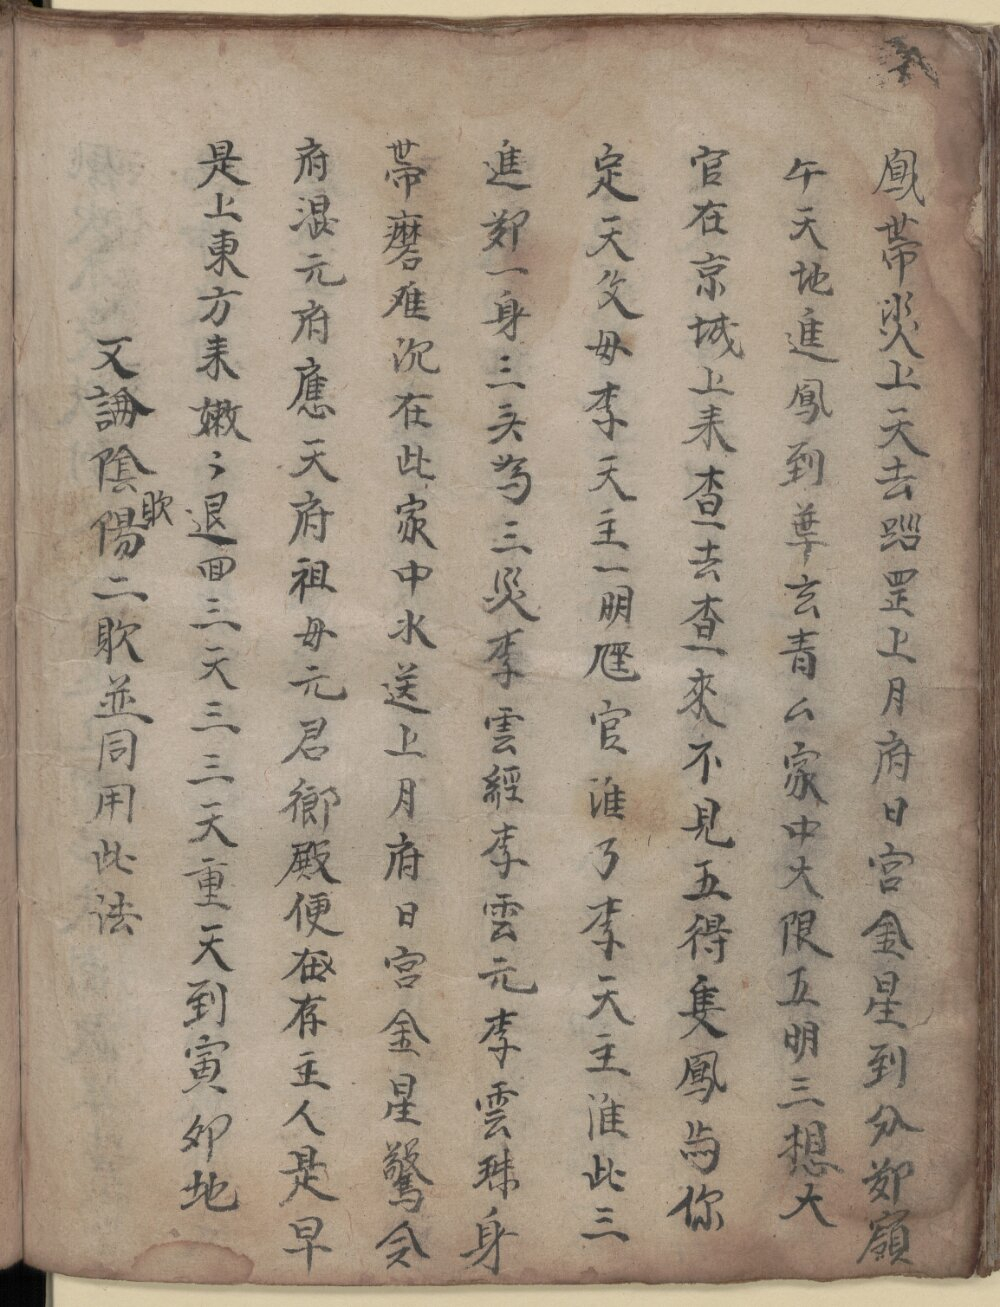 鳳帶災上天去跆罡上月府日宮金星到分鄭嶺
午天地進鳳到華玄青公家中大限五明三想大
官在京城上来查去查來不見五得隻鳳与你
定天父母李天主一明歷官淮乃李天主淮此三
進鄭一身三头為三災李雲經李雲元李雲珠身
帶磨难沉在此家中水送上月府日宮金星驚令
府混元府應天府祖母元君御殿便在存主人是早
是上東方来嫩々退回三天三三天重天到寅卯地
又論陰陽二欺並同用此法
欺